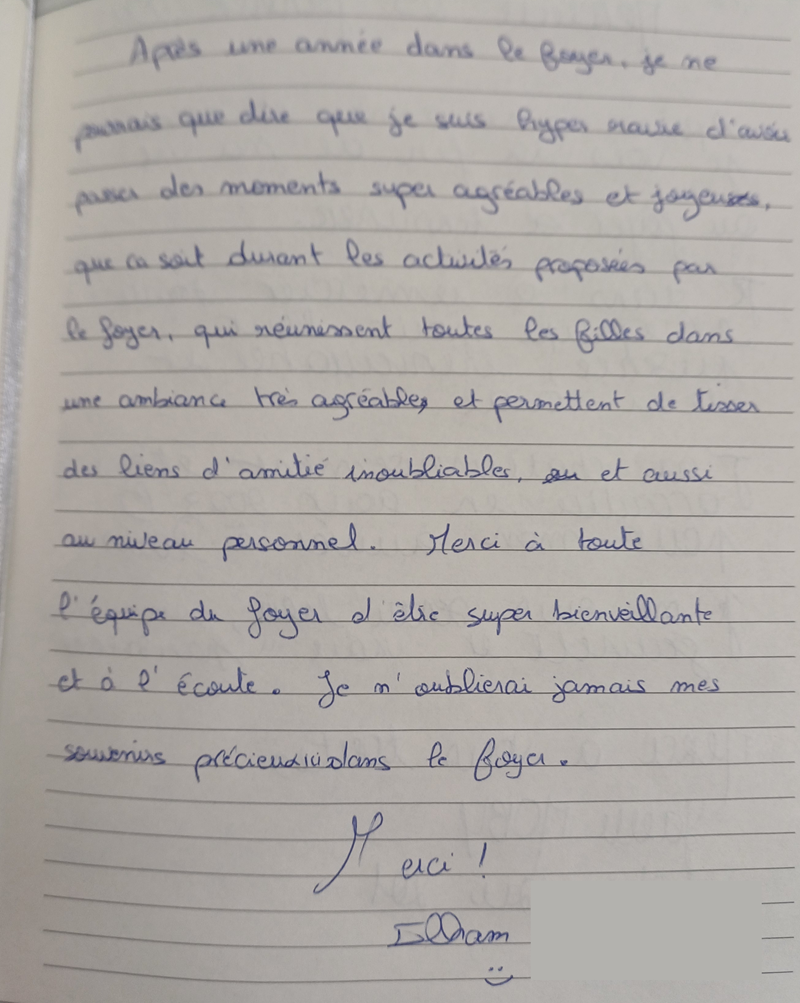 Après une année dans le foyer, je ne
pourrais que dire que je suis hyper ravie d'avoir
passer des moments super agréables et joyeuses,
que ca soit durant les activités proposées par
le foyer, qui réunissent toutes les filles dans
une ambiance très agréables, et permettent de tisser
des liens d'amitié inoubliables, et aussi
au niveau personnel. Merci à toute
l'équipe du foyer d'être super bienveillante
et à l'écoute. Je n'oublierai jamais mes
souvenirs précieux dans le foyer.
Merci !
Ilham